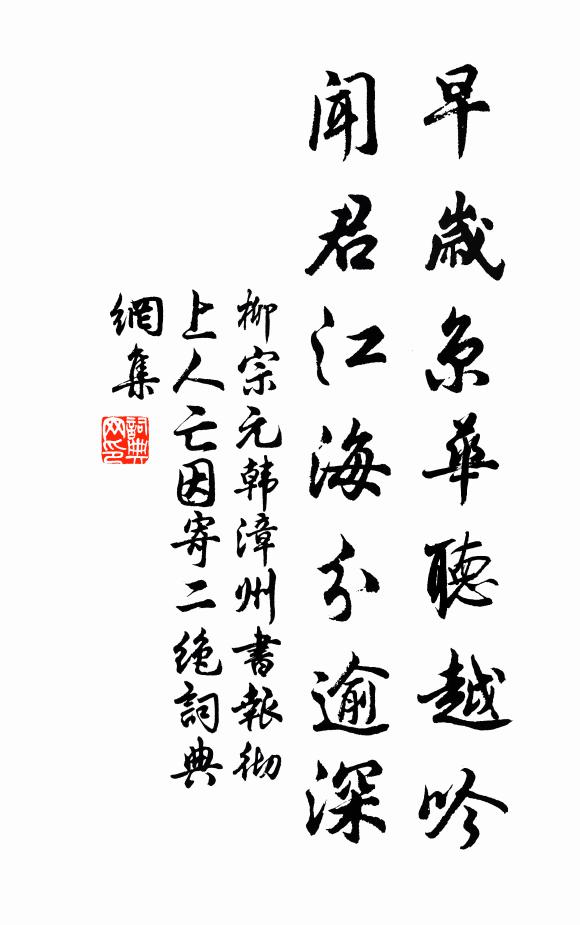 早歲京華聽越吟
聞君江海分逾深
柳宗元韩漳州書報彻
上人亡因寄二絶詞典
網集
詞典
网印